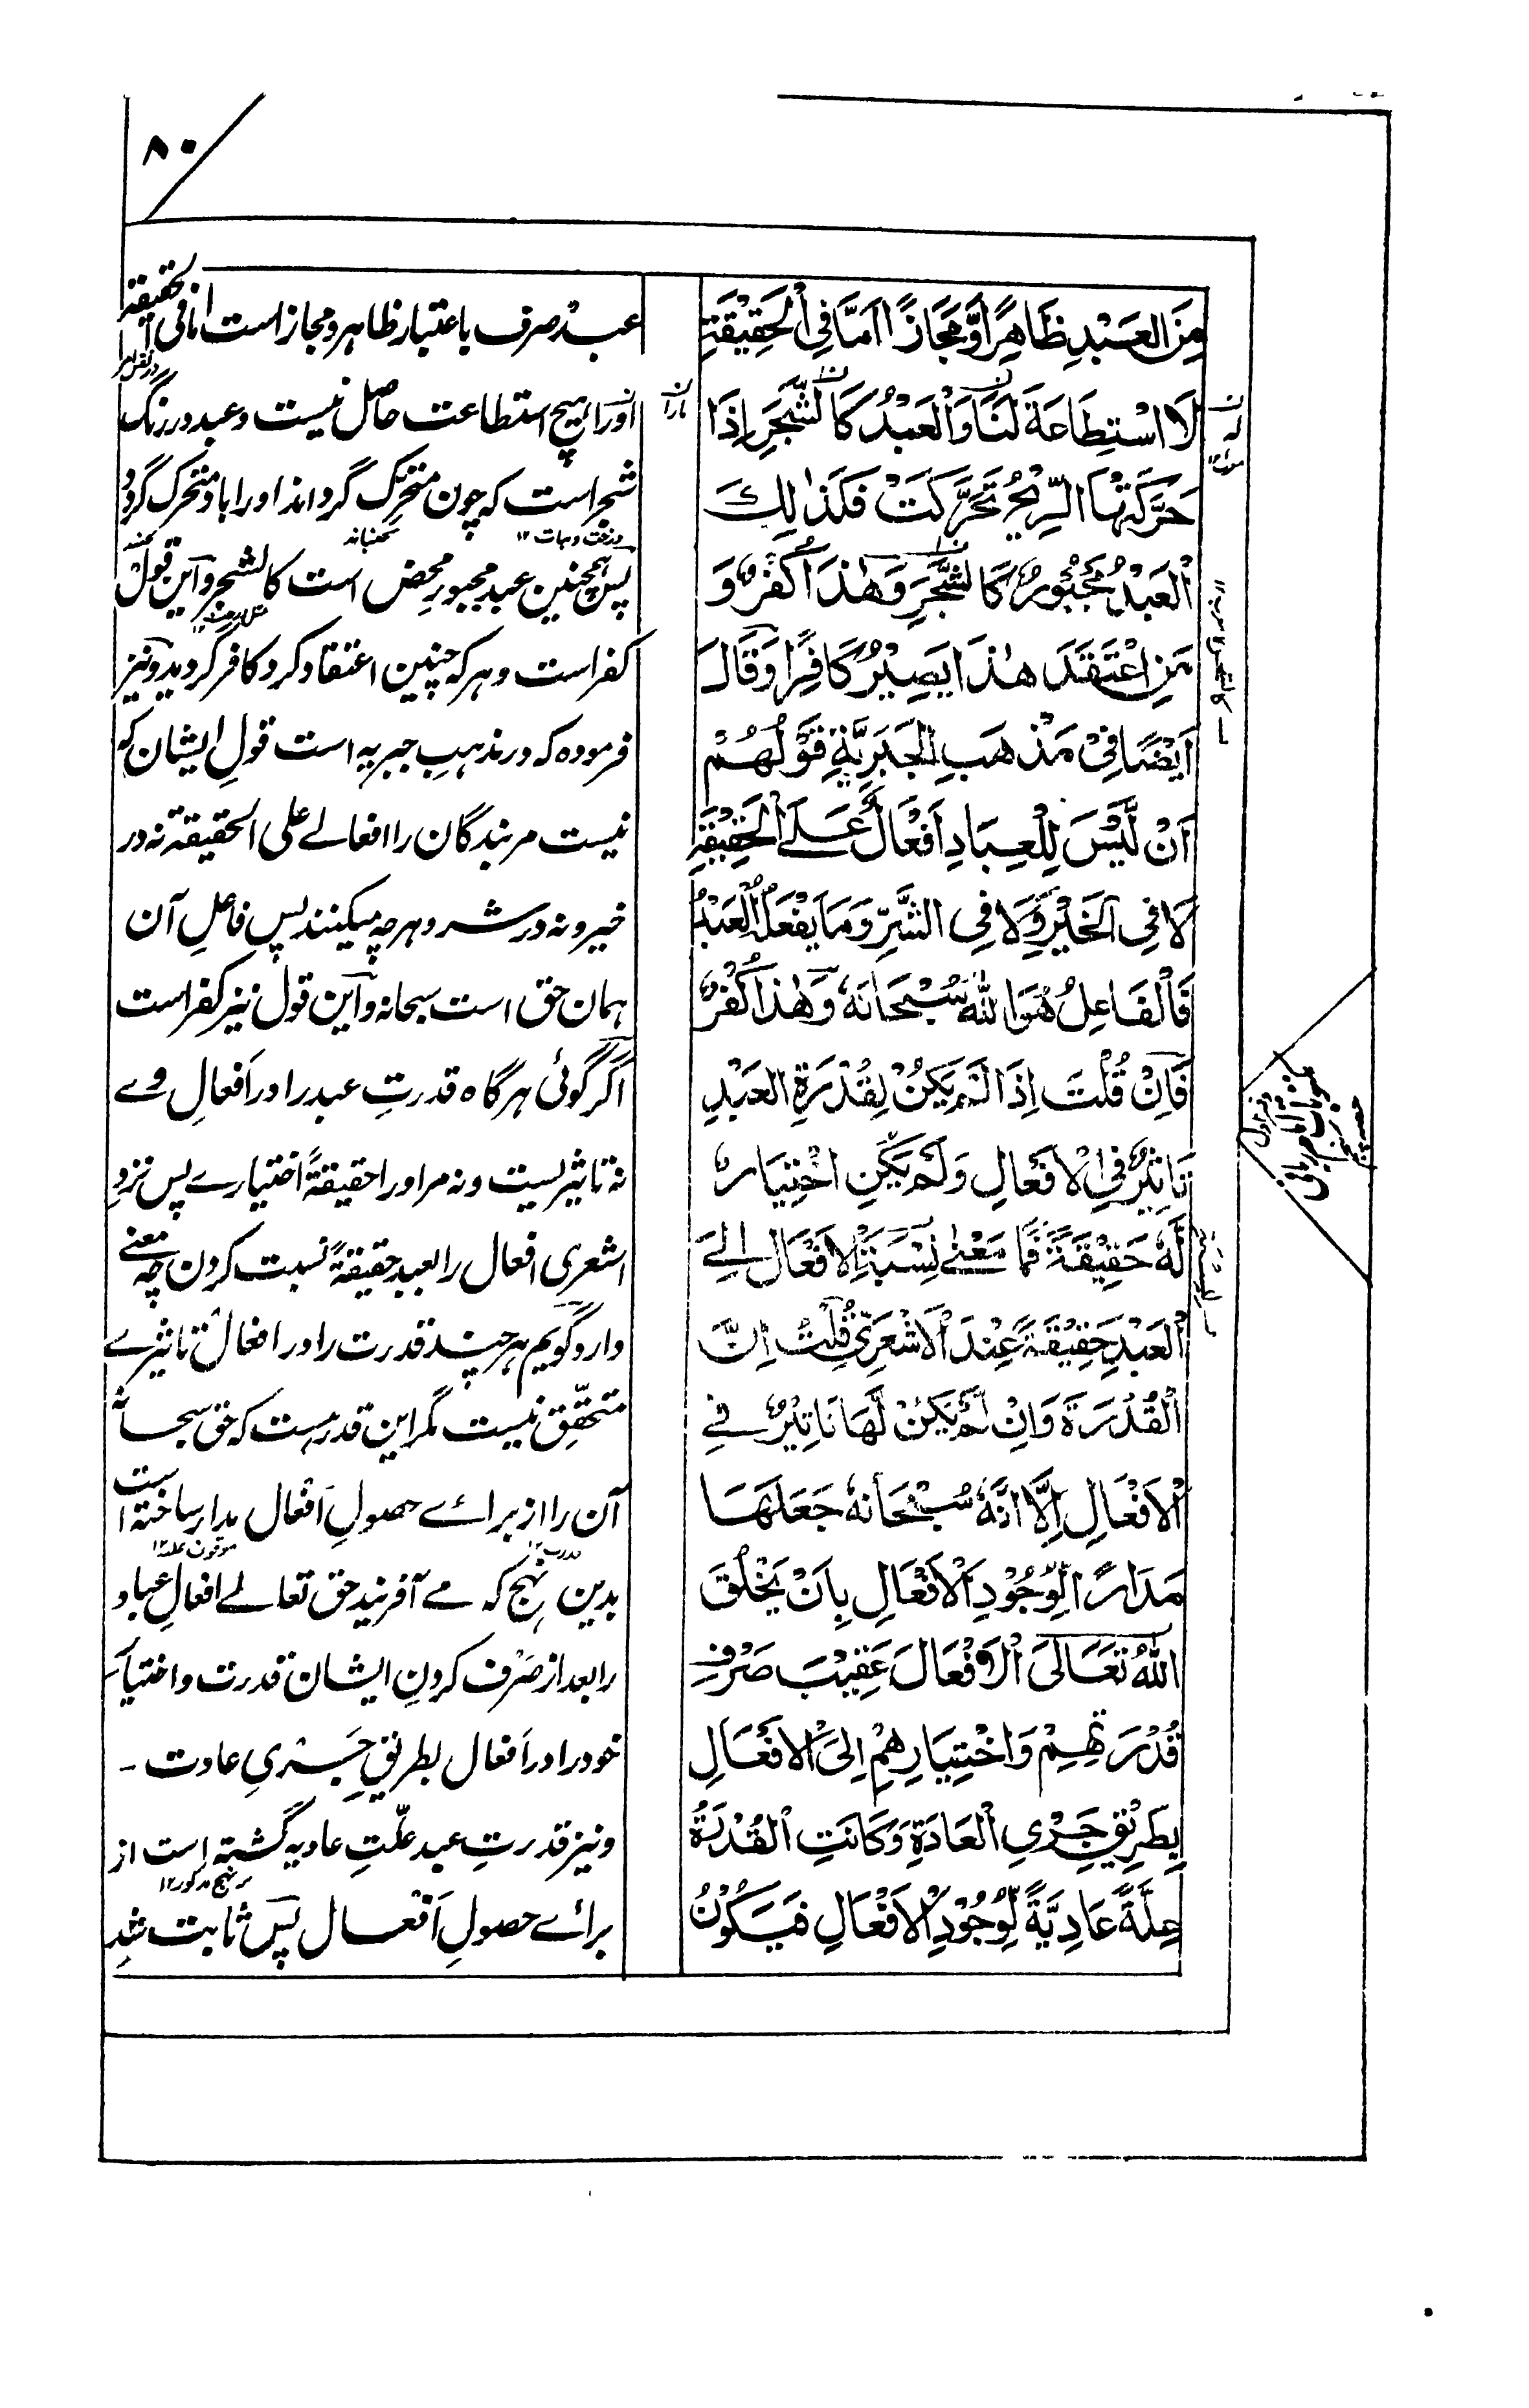 ۸۰
مِنَ الْعَبْدِ ظَاهِرًا وَّمَجَازًا اَمَّا فِي الْحَقِيْقَةِ
لَا اسْتِطَاعَةَ لَنَا وَالْعَبْدُ كَالشَّجَرِ اِذَا
حَرَّكَتْهَا الرِّيْحُ تَحَرَّكَتْ فَكَذٰلِكَ
الْعَبْدُ مَجْبُوْرٌ كَالشَّجَرِ وَهٰذَا كُفْرٌ وَ
مَنِ اعْتَقَدَ هٰذَا يَصِيْرُ كَافِرًا وَقَالَ
اَيْضًا فِيْ مَذْهَبِ الْجَبَرِيَّةِ قَوْلُهُمْ
اَنْ لَّيْسَ لِلْعِبَادِ اَفْعَالٌ عَلَے الْحَقِيْقَةِ
لَا فِي الْخَيْرِ وَلَا فِي الشَّرِّ وَمَا يَفْعَلُ الْعَبْدُ
فَالْفَاعِلُ هُوَ اللّٰهُ سُبْحَانَهٗ وَهٰذَا كُفْرٌ
فَاِنْ قُلْتَ اِذَا لَمْ يَكُنْ لِقُدْرَةِ الْعَبْدِ
تَاثِيْرٌ فِي الْاَفْعَالِ وَلَمْ يَكُنِ اخْتِيَارٌ
لَّهٗ حَقِيْقَةً فَمَا مَعْنٰے نِسْبَةِ الْاَفْعَالِ اِلَے
الْعَبْدِ حَقِيْقَةً عِنْدَ الْاَشْعَرِيِّ قُلْتُ اِنَّ
الْقُدْرَةَ وَاِنْ لَّمْ يَكُنْ لَّهَا تَاثِيْرٌ فِے
الْاَفْعَالِ اِلَّا اَنَّهٗ سُبْحَانَهٗ جَعَلَهَا
مَدَارًا لِّوُجُوْدِ الْاَفْعَالِ بِاَنْ يَخْلُقَ
اللّٰهُ تَعَالٰى الْاَفْعَالَ عَقِيْبَ صَرْفِ
قُدْرَتِهِمْ وَاخْتِيَارِهِمْ اِلَى الْاَفْعَالِ
بِطَرِيْقِ جَرْيِ الْعَادَةِ وَكَانَتِ الْقُدْرَةُ
عِلَّةً عَادِيَّةً لِّوُجُوْدِ الْاَفْعَالِ فَيَكُوْنُ
عبد صرف باعتبار ظاهر و مجاز است اما فی الحقیقة
اورا هیچ استطاعت حاصل نیست و عبد در رنگ
شجر است که چون متحرک گرداند او را باد متحرک گردد
پس همچنین عبد مجبورِ محض است کالشجر و این قول
کفر است و هر که چنین اعتقاد کرد کافر گردید و نیز
فرموده که در مذهبِ جبریه است قولِ ایشان که
نیست مر بندگان را افعالے علی الحقیقة نه در
خیر و نه در شر و هر چه میکنند پس فاعلِ آن
همان حق است سبحانه و این قول نیز کفر است
اگر گوئی هر گاه قدرتِ عبد را در اَفعالِ وے
نه تاثیریست و نه مر او را حقیقةً اختیارے پس نزدِ
اشعری افعال را بعبد حقیقةً نسبت کردن چه معنے
دارد گویم هر چند قدرت را در افعال تاثیرے
متحقق نیست مگر این قدر هست که حق سبحانه
آن را از برائے حصولِ اَفعال مدار ساخته است
بدین نهج که مے آفریند حق تعالے افعالِ عباد
را بعد از صَرْف کردنِ ایشان قدرت و اختیار
خود را در اَفعال بطریقِ جَریِ عادت -
و نیز قدرتِ عبد علّتِ عادیه گشته است از
برائے حصولِ اَفعال پس ثابت شد